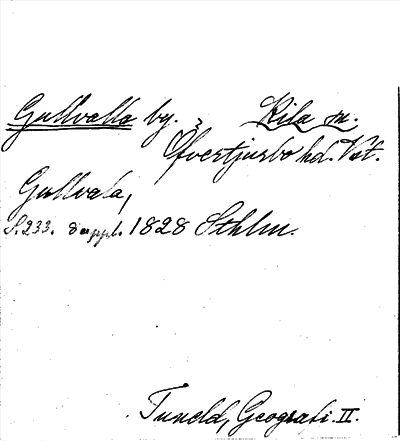 Gullvalla by. Kila sn.
Öfvertjurbo hd. Vst.
Gullvala,
S. 233. 8 uppl. 1828 Sthlm.
Tuneld, Geografi. II.